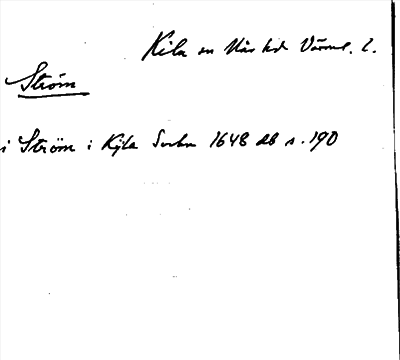 Kila sn Näs hd Värml. l.
Ström
i Ström i Kijla Sochn 1648 db s. 190